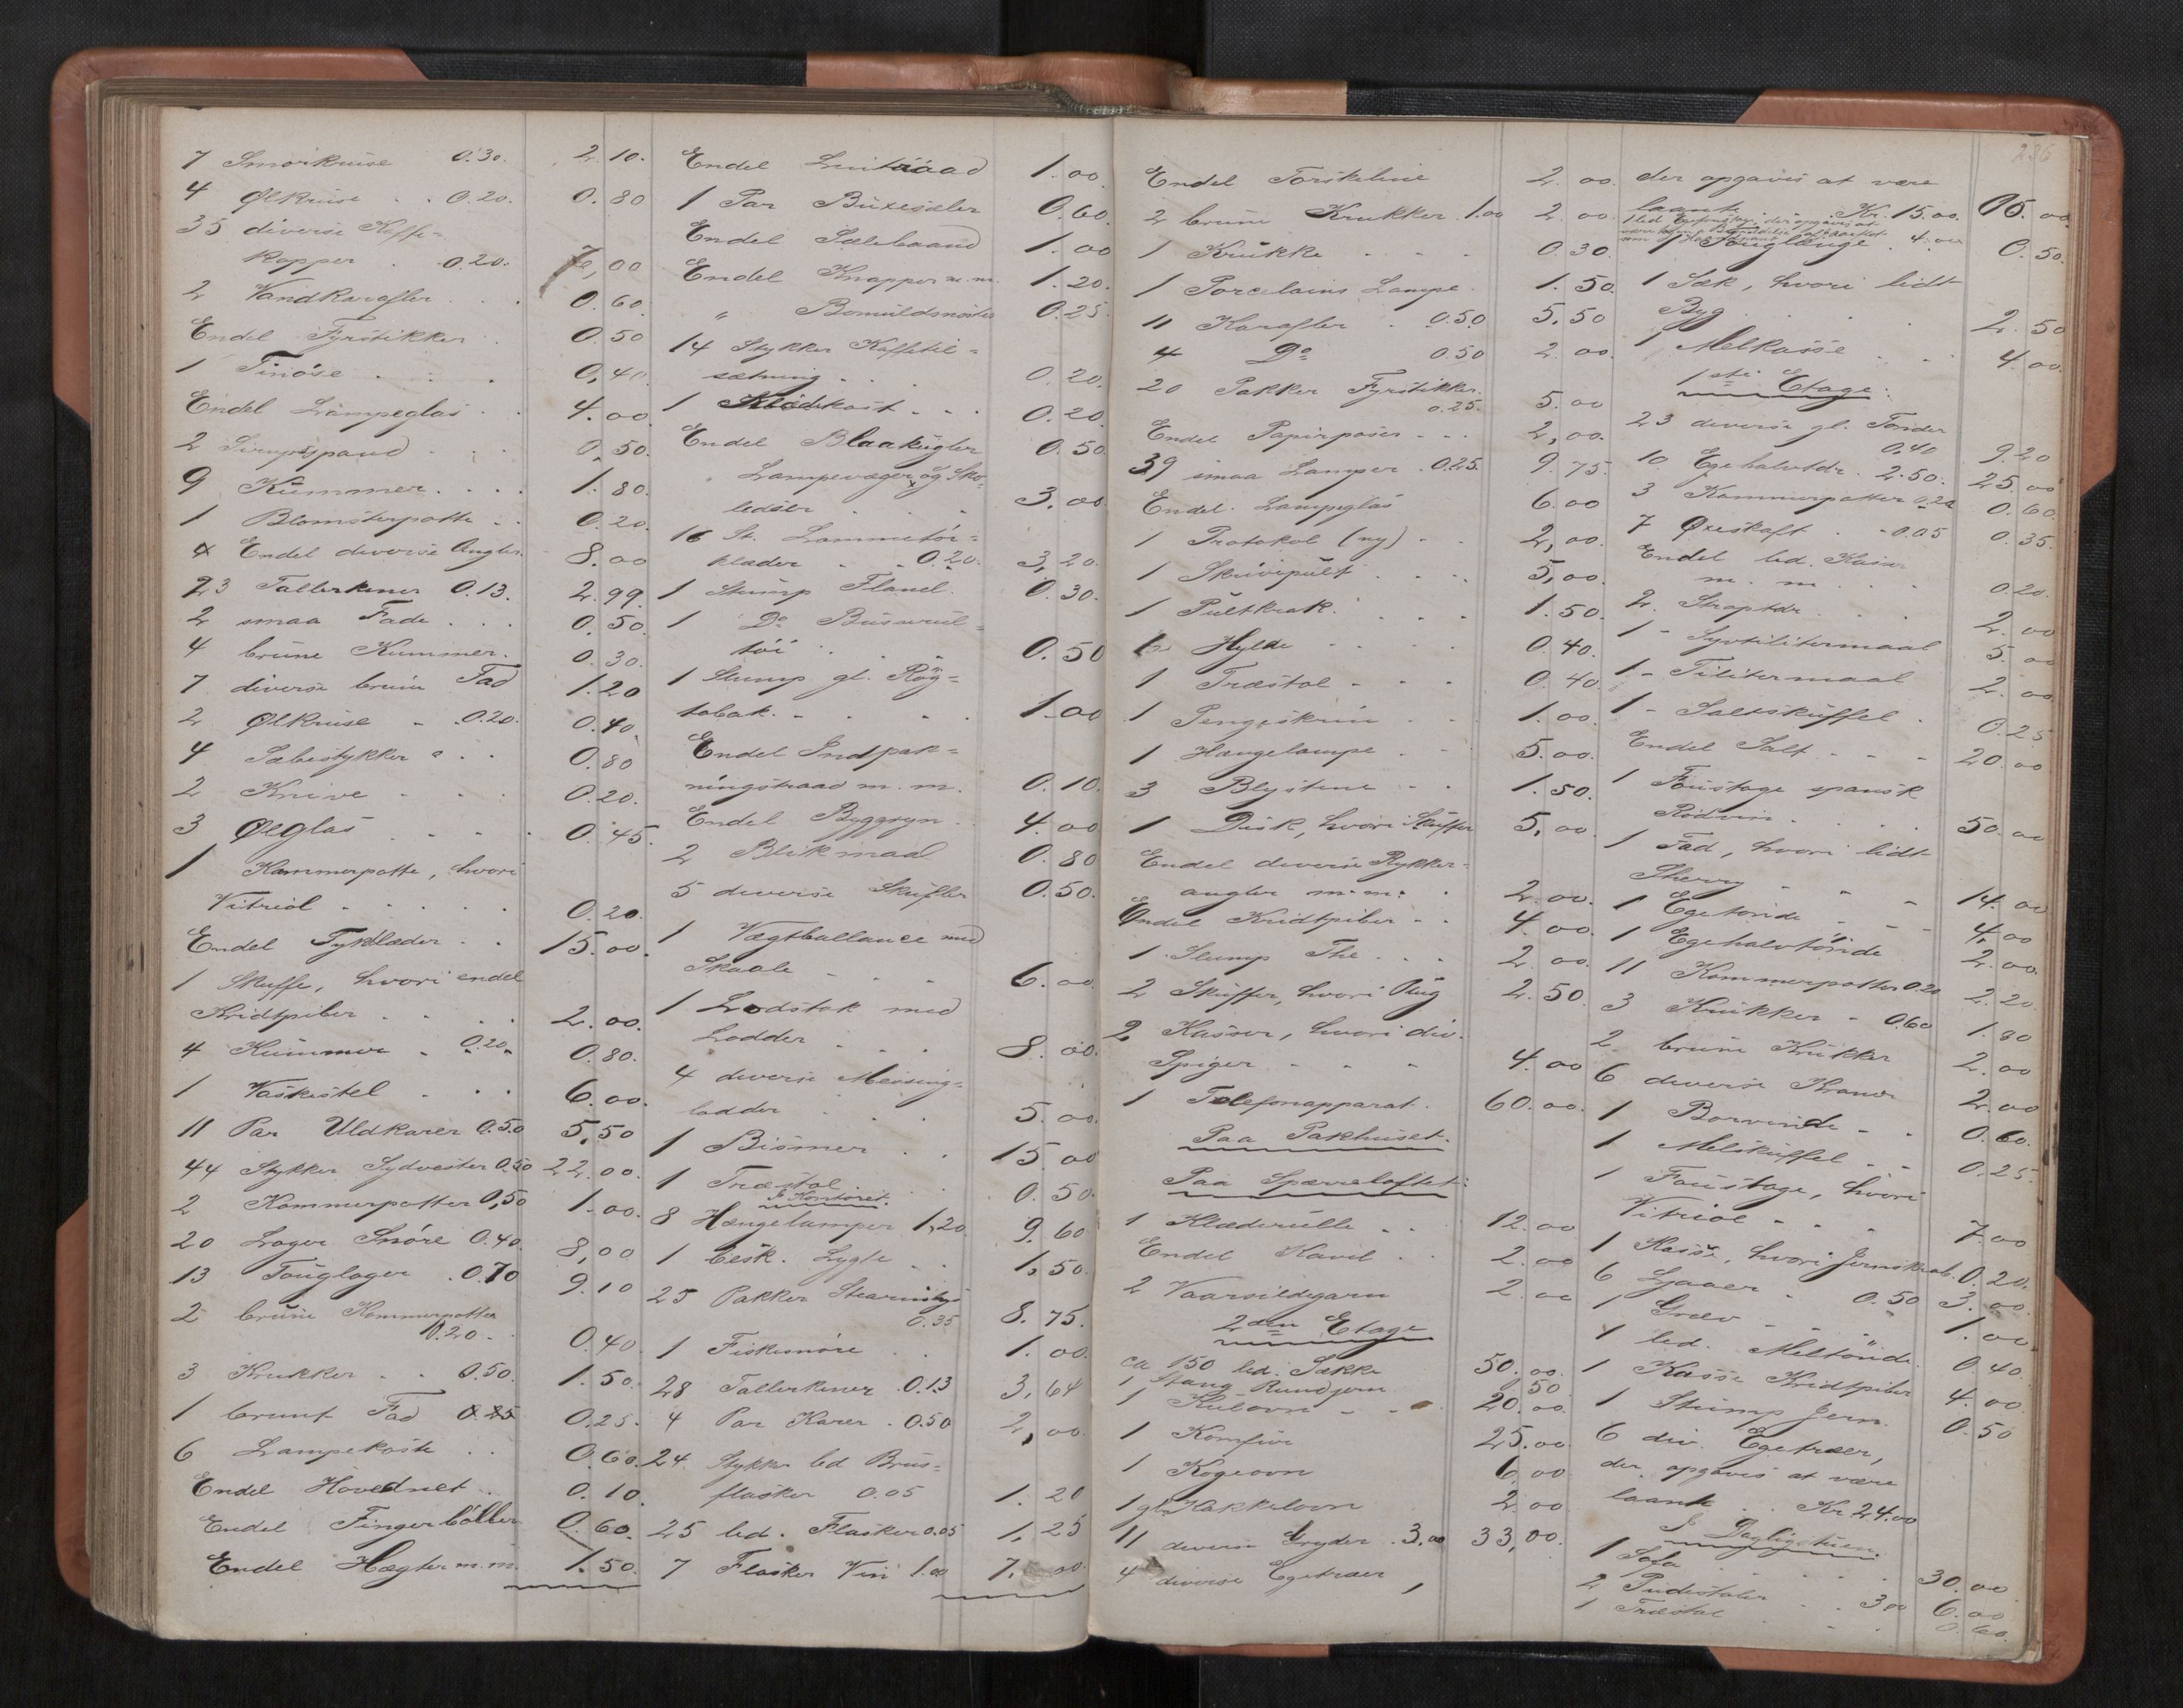 7 Smørkruse 0.30. 2.10.
4 Ølkruse . . 0.20. 0.80
35 diverse Kaffe=
Kopper . 0.20. 7,00
2 Vandkarafler . . 0.60.
Endel Fyrstikker . 0.50
1 Tinöse . . . 0,40.
Endel Lampeglas . . 4.00
2 Sirupsspand . . 0,50.
9 Kummer . . . . 1.80.
1 Blomsterpotte . . 0.20.
Endel diverse Angler. 8.00
23 Tallerkener 0.13. 2.99.
2 smaa Fade . . . 0.50.
4 brune Kummer. 0.30.
7 diverse brune Fad 1.20
2 Ølkruse - 0.20. 0.40.
4 Sæbestykker . . 0.80
2 Knive - . . . 0.20.
3 Ølglas . . . . 0.45.
1 Kammerpotte, hvori
Vitriol - . . . . 0.20.
Endel Tyklæder . . 15.00.
1 Skuffe, hvori endel
Kridtpiber . . . . 2.00.
4 Kummer . 0.20. 0.80.
1 Vaskestel . . . 6.00.
11 Par Uldkarer 0.50 5,50
44 Stykker Sydvester 0.50 22.00.
2 Kammerpotter 0,50 1.00.
20 Lager Snöre 0.40. 8,00
13 Tauglager .0.70 9.10
2 brune Kammerpotter
0.20 - 0.40
3 Krukker . . 0.50. 1.50.
1 brunt Fad 0.25 0.25.
6 Lampekoste . . 0.60.
Endel Hovednet . . 0.10.
Endel Fingerböller 0.60.
Endel Hægter m. m. 1.50.
Endel 1.00.
1 Par Buxeseler 0.60.
Endel Sælebaand 1.00
Endel Knapper m. m. 1.20.
" Bomuldsnöster 0.25.
14 Stykker Kaffetil=
sætning . . . 0.20.
1 Klædekost . . . 0.20.
Endel Blaakugler 0.50.
Lampevæger og Sko=
lidser . . . 3.00
16 St. Lommetör=
klæder . . 0.20. 3,20.
1 Stump Flanel. 0.30.
1 Do
töi . . . . 0.50
1 Stump gl. Rög=
tobak. - . . . 1.00
Endel Indpak=
ningstraad m. m. 0.10.
Endel Byggryn . 4.00
2 Blikmaal 0.80
5 diverse Skufler 0.50.
1 Vægtballance med
Skaale - . . . 6.00
1 Lodstok med
Lodder - . . . 8.00.
4 diverse Messing=
lodder . . . 5.00.
1 Bismer . . 15.00
1 Træstol . . . 0.50.
I Kontoret.
8 Hængelamper 1,20 9.60
1 besk. Lygte . . 1,50.
25 Pakker Stearinlys
0.35 8.75.
1 Fiskesnöre . . 1.00.
28 Tallerkener .0.13 3,64
4 Par Karer . 0.50 2,00.
24 Stykker led Brus=
flasker 0.05 1.20
25 led. Flasker 0.05 1,25
7 Flasker Vin 1.00 7.00
236
Endel Torskeline 2.00.
2 brune Krukker .1.00 2.00.
1 Krukke . . . . 0.30.
1 Porcelains Lampe. 1.50.
11 Karafler . 0.50 5.50
4 Do 0.50 2.00.
20 Pakker Fyrstikker
0.25. 5.00
Endel Papirposer - . . 2,00.
39 smaa Lamper .0.25. 9.75.
Endel Lampeglas 6.00
1 Protokol (ny) - . 2,00.
1 Skrivepult . . . . 5,00.
1 Pultkrak. . . . 1.50.
1 Hylde . . . . 0.40.
1 Træstol - . . 0.40.
1 Pengeskrin . . 1.00.
1 Hængelampe . . 5.00.
3 Blystene - . 1.50.
1 Disk, hvori Skuffer 5,00.
Endel diverse Pykker=
angler m. m. . 2.00.
Endel Kridtpiber - . 4.00.
1 Slump The . . . 2.00.
2 Skuffer, hvori Rug 2.50.
2 Kasser, hvori div.
Spiger - . . . 4.00
1 Telefonapparat. 60.00.
Paa Pakhuset.
Paa Sperreloftet:
1 Klæderulle . . 12.00
Endel Kavel . . 2.00
2 Vaarsildegarn 2.00
2den Etage
ca 150 led. Sække 50.00.
1 Stang Rundjern 50
1 Kulovn - - 20.00.
1 Komfur 25.00.
1 Kogeovn 6.00
1 gl. Kakkelovn 2.00
11 diverse Gryder .3.00 33,00.
4 diverse Egetræer ,
der opgaves at være
laante . . Kr. 15.00.
1 Sæk, hvori lidt
Byg . . . . 2.50
1 Melkasse . . 4.00.
1ste Etage:
23 diverse gl. Tönder
0.40 9.20
10 Egehalvtdr. 2.50. 25.00
3 Kammerpotter 0.20 0.60.
7 Öxeskaft . - 0.05 0.35.
Endel led. Kasser
m. m . . . 0.20.
2. Skaptdr. . . . 2.00
1 - Syvtilitermaal 5.00
1 - Tilitermaal 2.00
1 - Saltskuffel . 0.25
Endel Salt - - - 20.00
1 Foustage spansk
Rödvin . . . . 50.00
1 Fad, hvori lidt
Sherry - - - 14.00
1 Egetönde - - - 4,00
1 Egehalvtönde 2.00.
11 Kammerpotter 0.20 2.20
3 Krukker - 0.60 1.80
2 brune Krukker 2.00
6 diverse Kraner 2.00
1 Borvinde - . 0.60.
1 Melskuffel - - 0.25.
1 Foustage, hvori
Vitriol - . . . 7.00
1 Kasse, hvori Jernskrab. 0.20.
6 Ljaaer . 0.50 3.00.
1 Græv - . . . 1.00
1 led. Meltönde. 0.40.
1 Kasse Kridtpiber 4.00
1 Stump Jern. 0.50
6 div. Egetræer,
der opgaves at være
laante . . Kr. 24.00
I Dagligstuen.
1 Sofa . . . . . 30.00
2 Pudestaler - . 3.00 6.00
1 Træstol - . . 0.60.